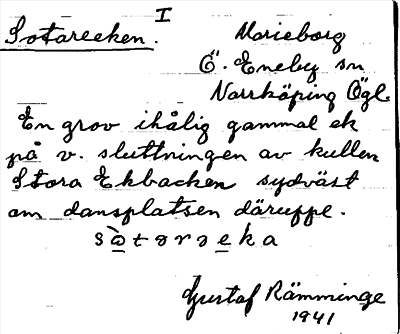 I
Sotareeken.
Marieborg
Ö. Eneby sn
Norrköping Ögl.
En grov ihålig gammal ek
på v. sluttningen av kullen
Stora Ekbacken sydväst
om dansplatsen däruppe.
sòtarɘeka
Gustaf Rämminge
1941